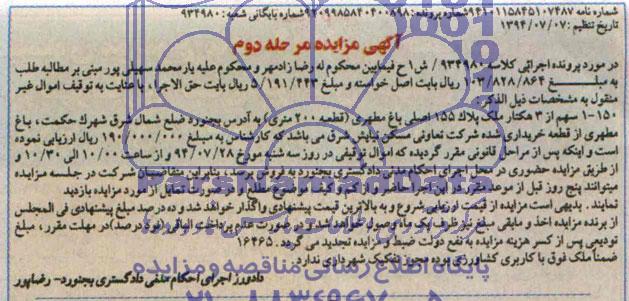 شماره نامه ۹۴۱۰۱۱۵۸۴۵۱۰۷۴۸۷ شماره پرونده: ۹۲۰۹۹۸۵۸۴۰۴۰۰۸۹۸ شماره بایگانی شعبه: ۹۳۴۹۸۰
تاریخ تنظیم: ۱۳۹۴/۰۷/۰۷
آگهی مزایده مرحله دوم
در مورد پرونده اجرائی کلاسه ۹۳۴۹۸۰ / ش ۱ ح فیمابین محکوم له رضا زادمهر و محکوم علیه یار محمد سهیلی پور مبنی بر مطالبه طلب
به مبلغ ۱۰۳/۸۲۸/۸۶۴ ریال بابت اصل خواسته و مبلغ ۵/۱۹۱/۴۴۳ ریال بابت حق الاجرا، با عنایت به توقیف اموال غیر
منقول به مشخصات ذیل الذکر:
۱-۱۵۰ سهم از ۳ هکتار ملک پلاک ۱۵۵ اصلی باغ مطهری (قطعه ۲۰۰ متری) به آدرس بجنورد ضلع شمال شرق شهرک حکمت، باغ
مطهری از قطعه خریداری شده شرکت تعاونی مسکن شرق می باشد که کارشناس به مبلغ ۱۹۰/۰۰۰/۰۰۰ ریال ارزیابی نموده
است و اینکه پس از مراحل قانونی مقرر گردیده که اموال توقیفی در روز سه شنبه مورخ ۹۴/۰۷/۲۸ و از ساعت ۱۰/۰۰ الی ۱۰/۳۰ و
از طریق مزایده حضوری در محل اجرای احکام مدنی دادگستری بجنورد به فروش برسد، بنابراین متقاضیان شرکت در جلسه مزایده
میتوانند پنج روز قبل از موعد مقرر در این اجرا حاضر و از کم و کیف موضوع مطلع و از مورد مزایده بازدید
نمایند. بدیهی است مزایده از قیمت ارزیابی شروع و به بالاترین قیمت پیشنهادی واگذار خواهد شد و ده درصد مبلغ پیشنهادی فی المجلس
از برنده مزایده اخذ و مابقی مبلغ نیز ظرف یک ماه وصول خواهد شد و در صورت عدم پرداخت الباقی (نود درصد) در مهلت مقرر، مبلغ
تودیعی پس از کسر هزینه مزایده به نفع دولت ضبط و مزایده تجدید می گردد. ۱۶۴۶۵
ضمناً ملک فوق با کاربری کشاورزی بوده مجوز تفکیک شهرداری ندارد.
دادورز اجرای احکام مدنی دادگستری بجنورد - رضاپور
پایگاه اطلاع رسانی مناقصه و مزایده